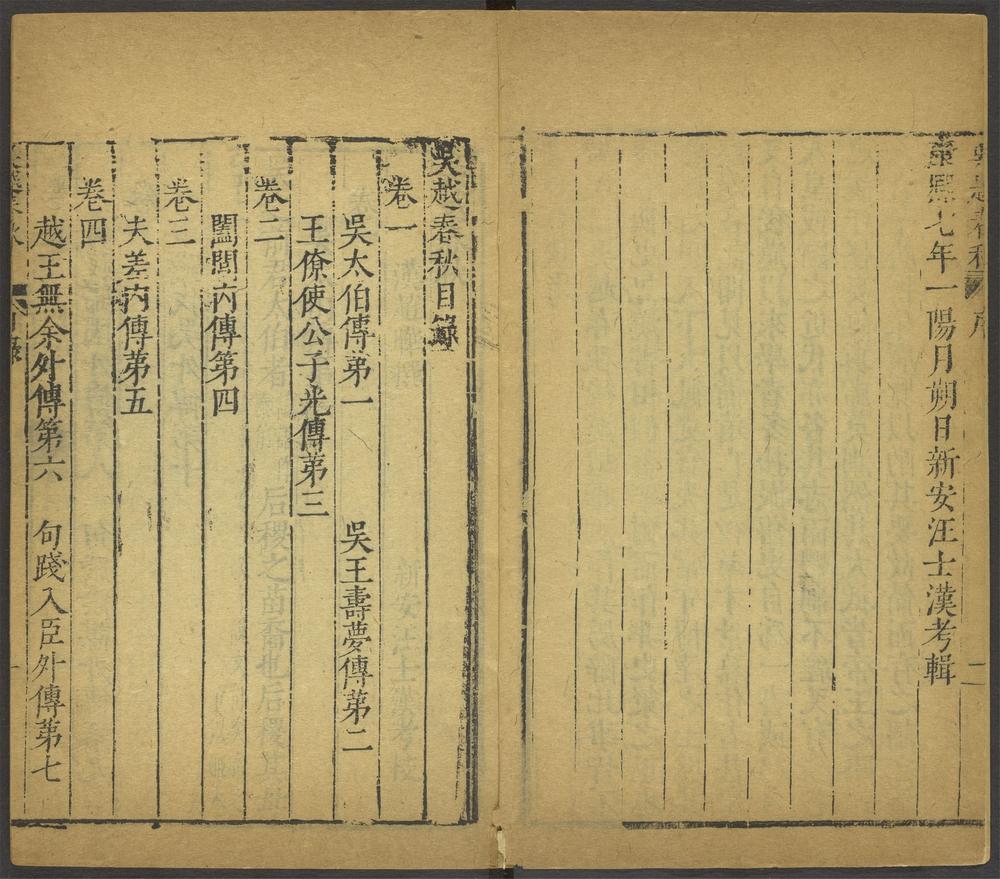 吳越春秋 序 二
康熙七年一陽月朔日新安汪士漢考輯
吳越春秋目錄
卷一
吳太伯傳苐一 吳王壽夢傳苐二
王僚使公子光傳苐三
卷二
闔閭內傳苐四
卷三
夫差內傳苐五
卷四
越王無余外傳第六 句踐入臣外傳苐七